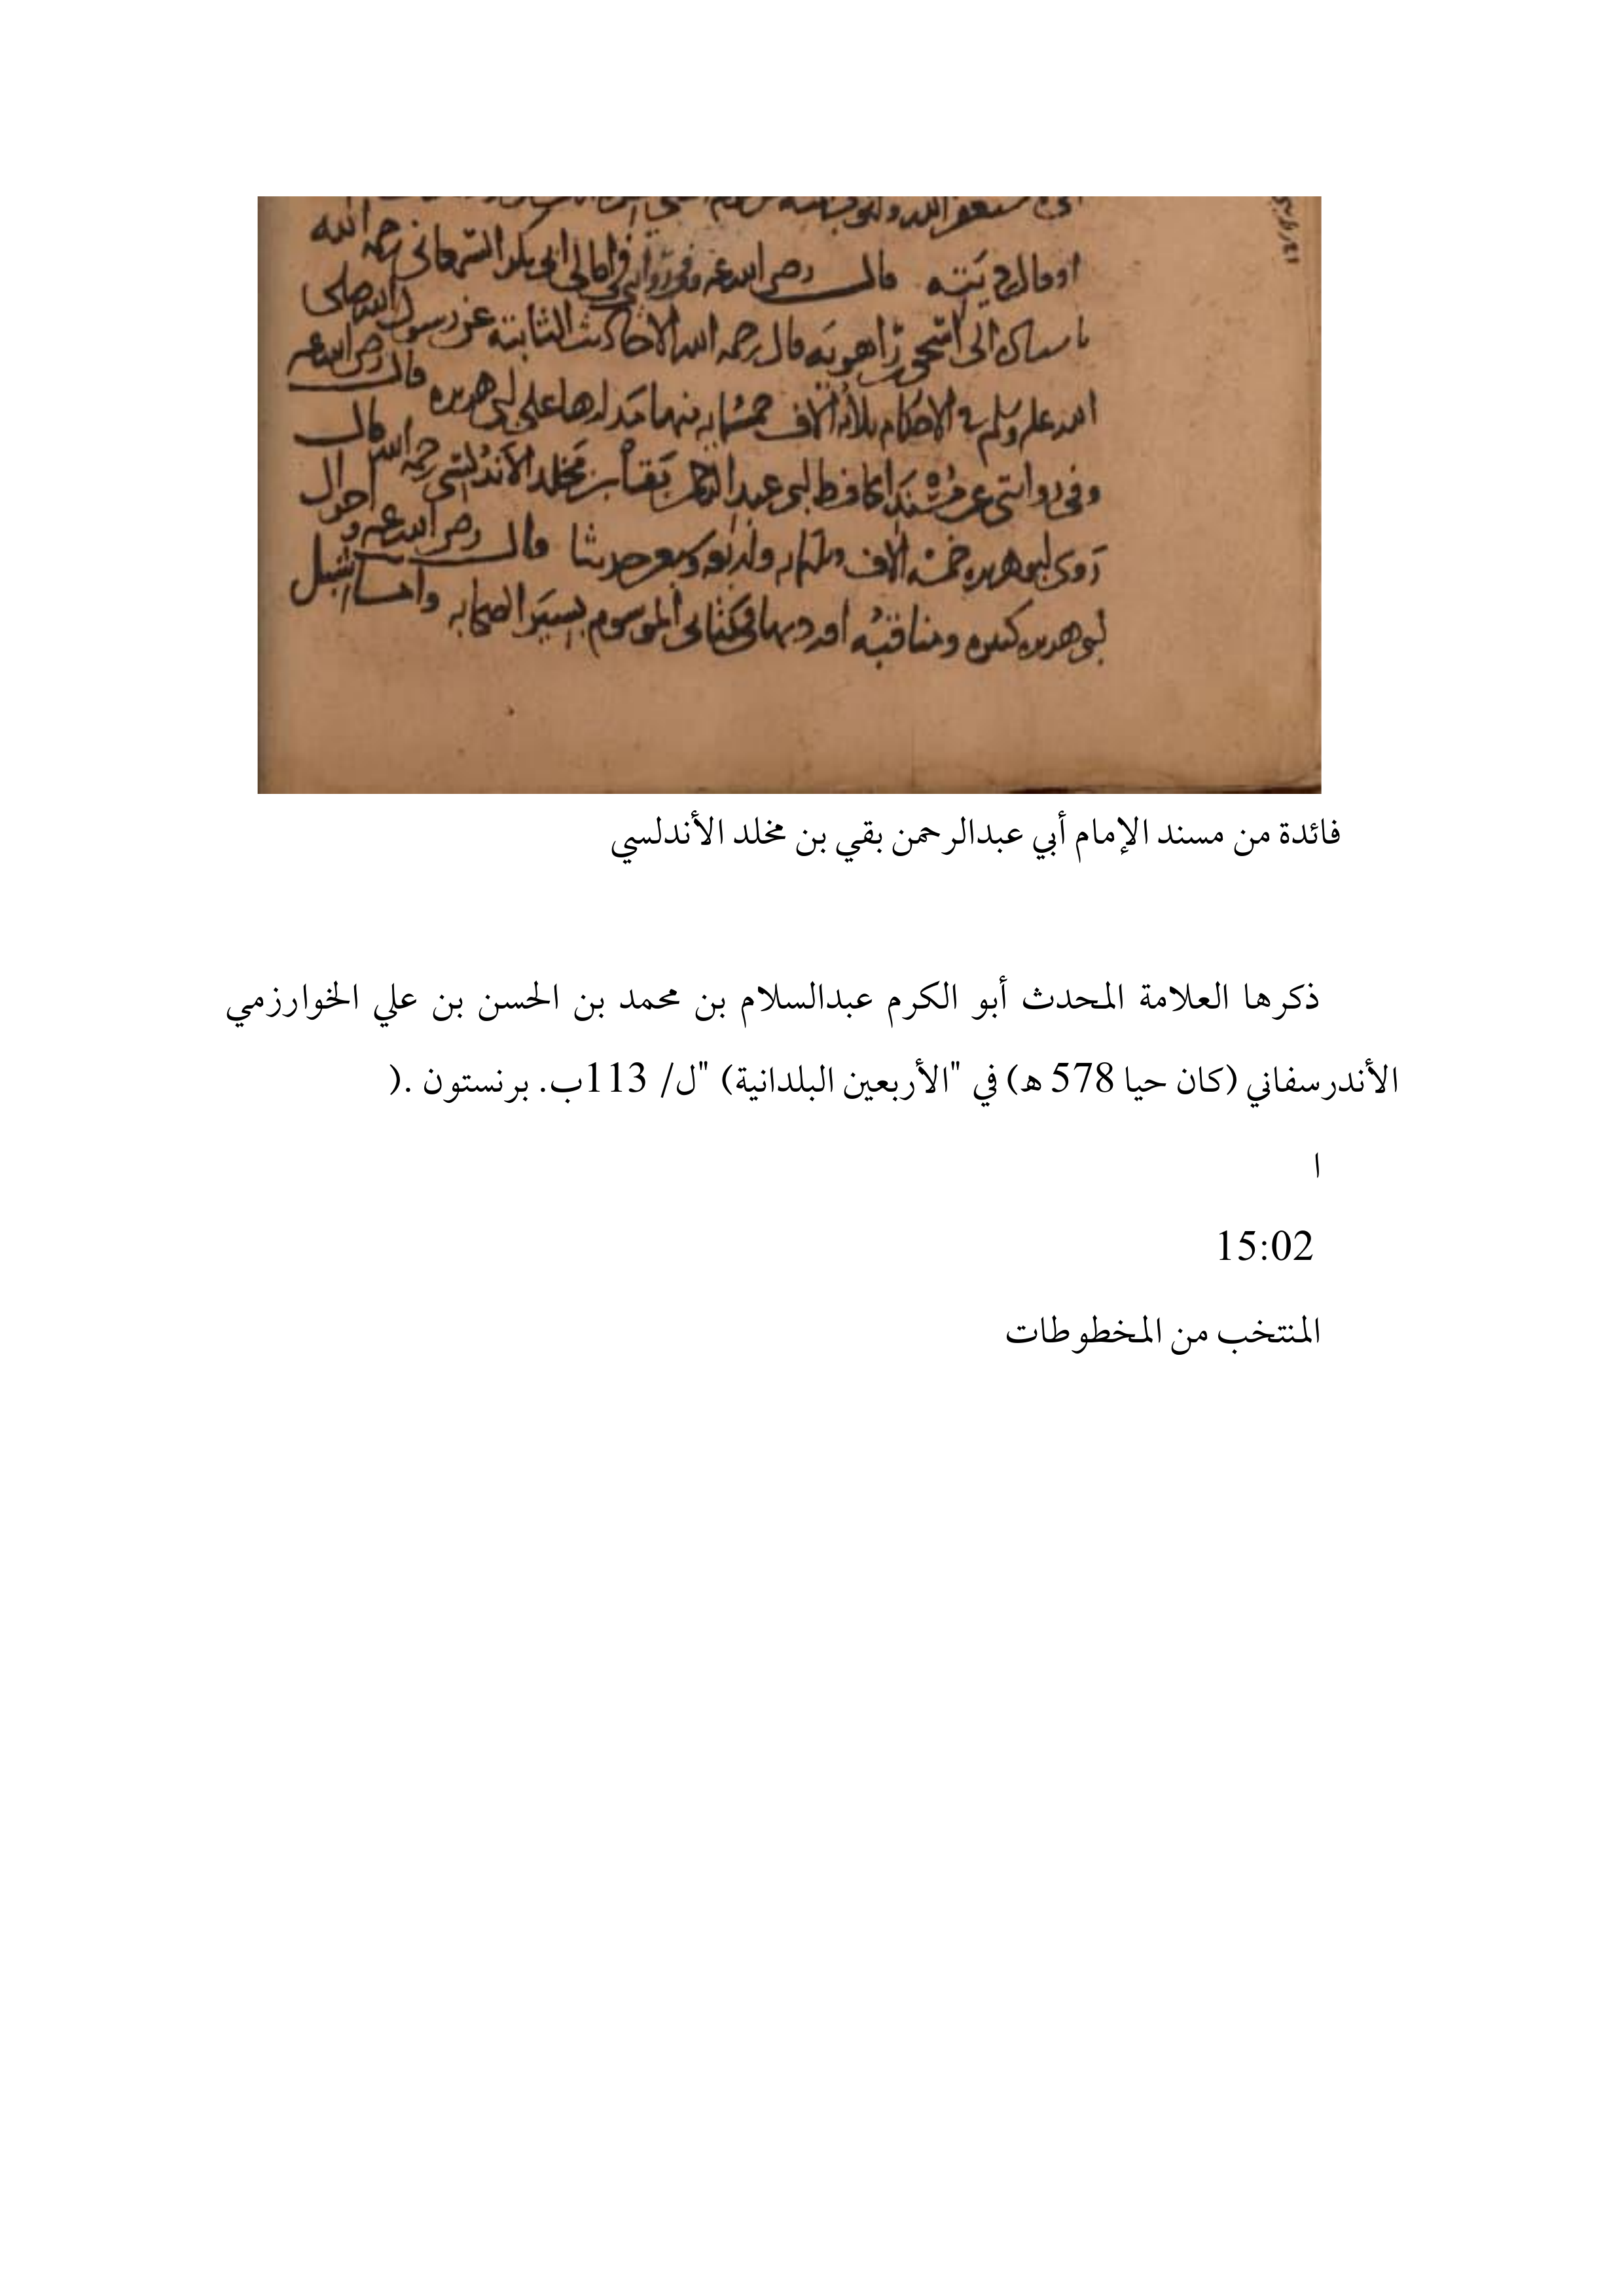 او قال في بيته قال رضي الله عنه وفي روايتي في امالي ابي بكر السمعاني رحمه الله
الى اسحق راهويه قال رحمه الله الاحاديث الثابتة عن رسول الله صلى
الله عليه وسلم في الاحكام ثلاثة الاف خمسمايه منها مدارها على ابي هريره قال رضي الله عنه
وفي روايتي عن مسند الحافظ ابي عبد الرحمن بن مخلد الاندلسي رحمه الله قال
روى ابو هريره خمسة الاف وثلثمايه واربعه وسبعين حديثا قال رضي الله عنه واحوال
ابي هريره كثيره ومناقبه اوردتها في كتابي الموسوم بسير الصحابه
فائدة من مسند الإمام أبي عبدالرحمن بقي بن مخلد الأندلسي
ذكرها العلامة المحدث أبو الكرم عبدالسلام بن محمد بن الحسن بن علي الخوارزمي
الأندرسفاني (كان حيا 578 هـ) في "الأربعين البلدانية) "ل/ 113ب. برنستون .(
ا
15:02
المنتخب من المخطوطات